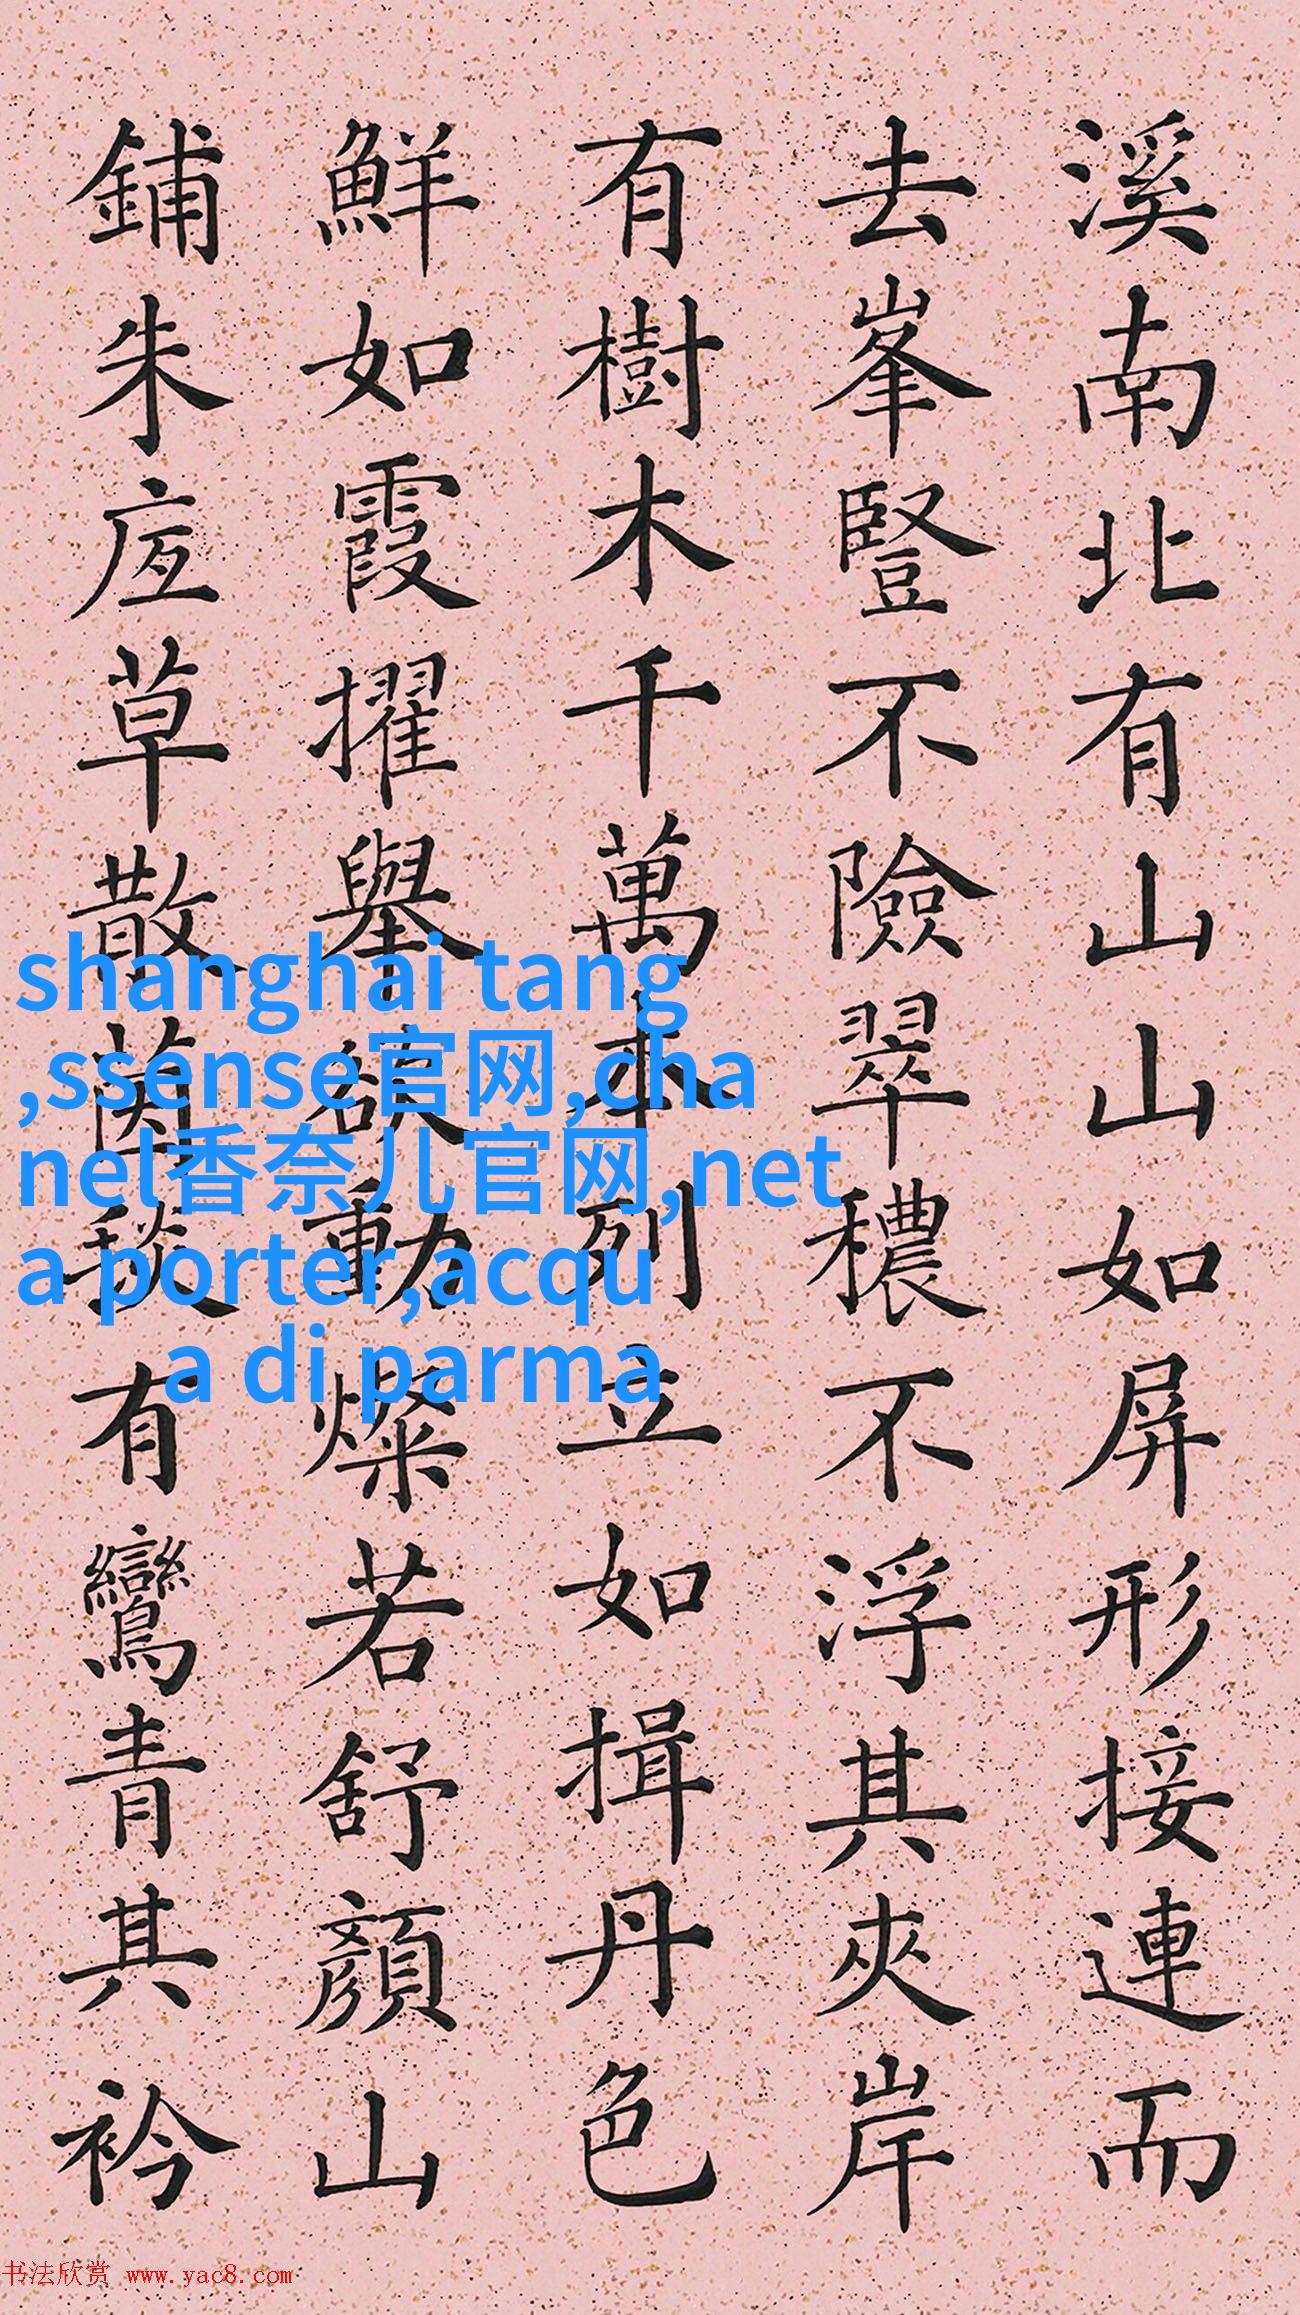 溪南北有山山如屏形接連而
去峯豎不險翠穠不浮其夾岸
有樹木千萬本列立如揖丹色
鮮如霞擢舉欲動燦若舒顏山
鋪朱底草散茵毯有鸞青其衿
shanghai tang
,ssense官网,cha
nel香奈儿官网,net
a porter,acqu
a di parma
书法欣赏 www.yac8.com